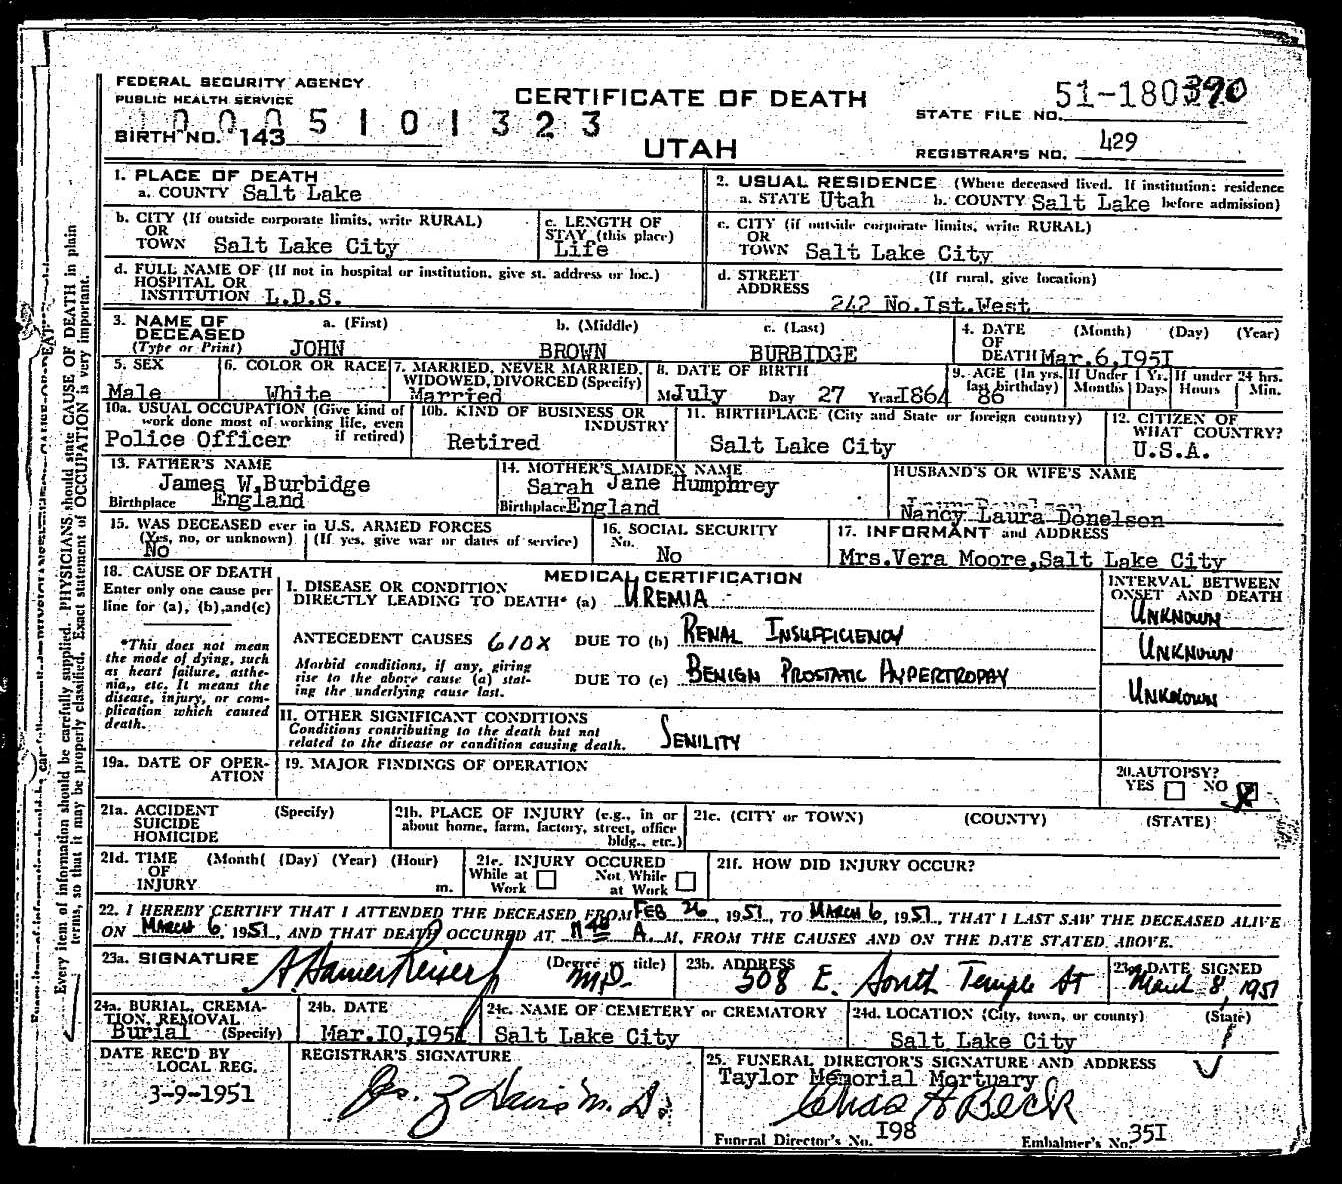 FEDERAL SECURITY AGENCY
PUBLIC HEALTH SERVICE
CERTIFICATE OF DEATH
UTAH
51-180390
STATE FILE NO.
BIRTH NO. 143
0005101323
REGISTRAR'S NO. 429
1. PLACE OF DEATH
a. COUNTY Salt Lake
2. USUAL RESIDENCE (Where deceased lived. If institution: residence
a. STATE Utah b. COUNTY Salt Lake before admission)
b. CITY (If outside corporate limits, write RURAL)
OR
TOWN Salt Lake City
c. LENGTH OF
STAY (this place)
Life
c. CITY (if outside corporate limits, write RURAL)
OR
TOWN Salt Lake City
d. FULL NAME OF (If not in hospital or institution, give st. address or loc.)
HOSPITAL OR
INSTITUTION L.D.S.
d. STREET (If rural, give location)
ADDRESS
242 No.Ist.West
3. NAME OF
DECEASED
(Type or Print)
a. (First) b. (Middle) c. (Last)
JOHN BROWN BURBIDGE
4. DATE (Month) (Day) (Year)
OF
DEATH Mar.6,I95I
5. SEX
Male
6. COLOR OR RACE
White
7. MARRIED, NEVER MARRIED,
WIDOWED, DIVORCED (Specify)
Married
8. DATE OF BIRTH
July Day 27 Year I864
9. AGE (In yrs.
last birthday)
86
If Under 1 Yr.
Months Days
If under 24 hrs.
Hours Min.
10a. USUAL OCCUPATION (Give kind of
work done most of working life, even
if retired)
Police Officer
10b. KIND OF BUSINESS OR
INDUSTRY
Retired
11. BIRTHPLACE (City and State or foreign country)
Salt Lake City
12. CITIZEN OF
WHAT COUNTRY?
U.S.A.
13. FATHER'S NAME
James W.Burbidge
Birthplace England
14. MOTHER'S MAIDEN NAME
Sarah Jane Humphrey
Birthplace England
HUSBAND'S OR WIFE'S NAME
Nancy Laura Donelson
15. WAS DECEASED ever in U.S. ARMED FORCES
(Yes, no, or unknown) (If yes, give war or dates of service)
No
16. SOCIAL SECURITY
No.
No
17. INFORMANT and ADDRESS
Mrs.Vera Moore,Salt Lake City
18. CAUSE OF DEATH
Enter only one cause per
line for (a), (b),and(c)
*This does not mean
the mode of dying, such
as heart failure, asthe-
nia,, etc. It means the
disease, injury, or com-
plication which caused
death.
MEDICAL CERTIFICATION
I. DISEASE OR CONDITION
DIRECTLY LEADING TO DEATH* (a) UREMIA
ANTECEDENT CAUSES 610X DUE TO (b) RENAL INSUFFICIENCY
Morbid conditions, if any, giving
rise to the above cause (a) stat-
ing the underlying cause last.
DUE TO (c) BENIGN PROSTATIC HYPERTROPHY
II. OTHER SIGNIFICANT CONDITIONS
Conditions contributing to the death but not
related to the disease or condition causing death.
SENILITY
INTERVAL BETWEEN
ONSET AND DEATH
UNKNOWN
UNKNOWN
UNKNOWN
19a. DATE OF OPER-
ATION
19. MAJOR FINDINGS OF OPERATION
20.AUTOPSY?
YES NO X
21a. ACCIDENT (Specify)
SUICIDE
HOMICIDE
21b. PLACE OF INJURY (e.g., in or
about home, farm, factory, street, office
bldg., etc.)
21c. (CITY or TOWN) (COUNTY) (STATE)
21d. TIME (Month( (Day) (Year) (Hour)
OF
INJURY m.
21e. INJURY OCCURED
While at Work
Not While at Work
21f. HOW DID INJURY OCCUR?
22. I HEREBY CERTIFY THAT I ATTENDED THE DECEASED FROM FEB 26, 1951, TO MARCH 6, 1951, THAT I LAST SAW THE DECEASED ALIVE
ON MARCH 6, 1951, AND THAT DEATH OCCURED AT 11 40 A. M, FROM THE CAUSES AND ON THE DATE STATED ABOVE.
23a. SIGNATURE
(Degree or title)
M.D.
23b. ADDRESS
508 E. South Temple St
DATE SIGNED
March 8, 1951
24a. BURIAL, CREMA-
TION, REMOVAL
Burial (Specify)
24b. DATE
Mar.IO,I951
24c. NAME OF CEMETERY or CREMATORY
Salt Lake City
24d. LOCATION (City, town, or county) (State)
Salt Lake City
DATE REC'D BY
LOCAL REG.
3-9-1951
REGISTRAR'S SIGNATURE
25. FUNERAL DIRECTOR'S SIGNATURE AND ADDRESS
Taylor Memorial Mortuary
Chas A Beck
Funeral Director's No. I98
Embalmer's No. 35I
Every item of information should be carefully supplied. PHYSICIANS should state CAUSE OF DEATH in plain
terms, so that it may be properly classified. Exact statement of OCCUPATION is very important.